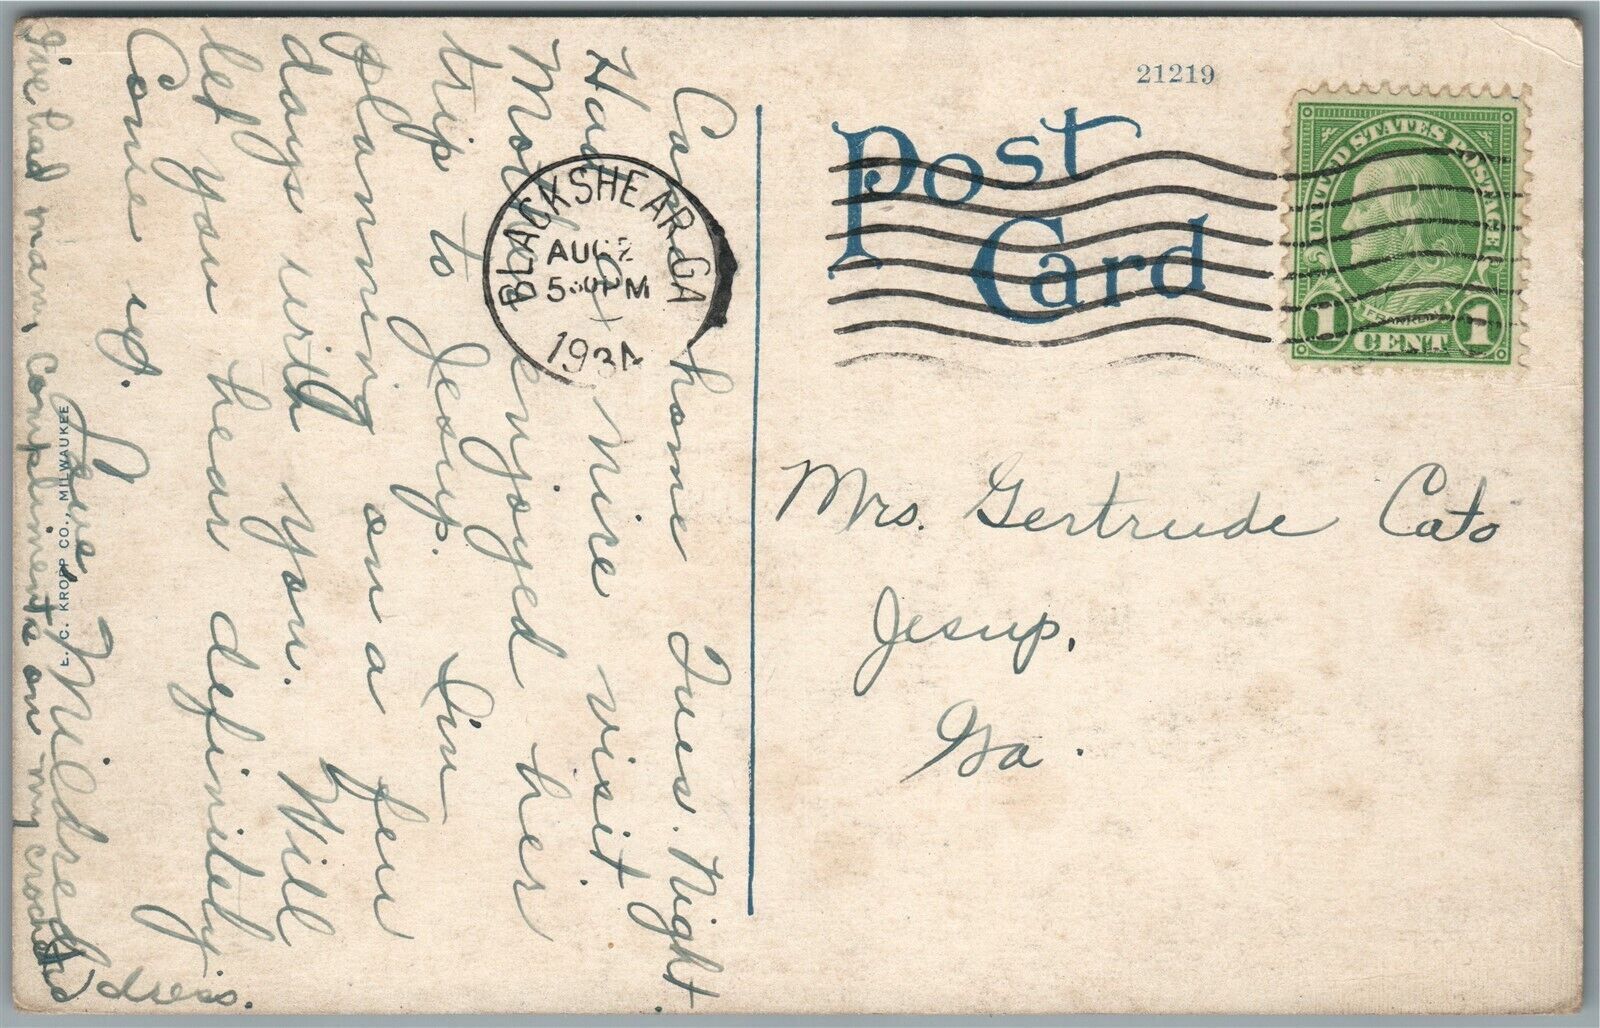 Came home Tues. Night
Had a nice visit
Mother enjoyed her
trip to Jesup. I'm
planning on a few
days with you. Will
let you hear definitely
Come up.
Love,
Mildred
I've had many compliments on my crocheted
dress.
E. C. KROPP CO., MILWAUKEE
BLACKSHEAR, GA
AUG 2
5 PM
193
21219
Post
Card
UNITED STATES POSTAGE
FRANKLIN
1 CENT 1
Mrs. Gertrude Cato
Jesup,
Ga.